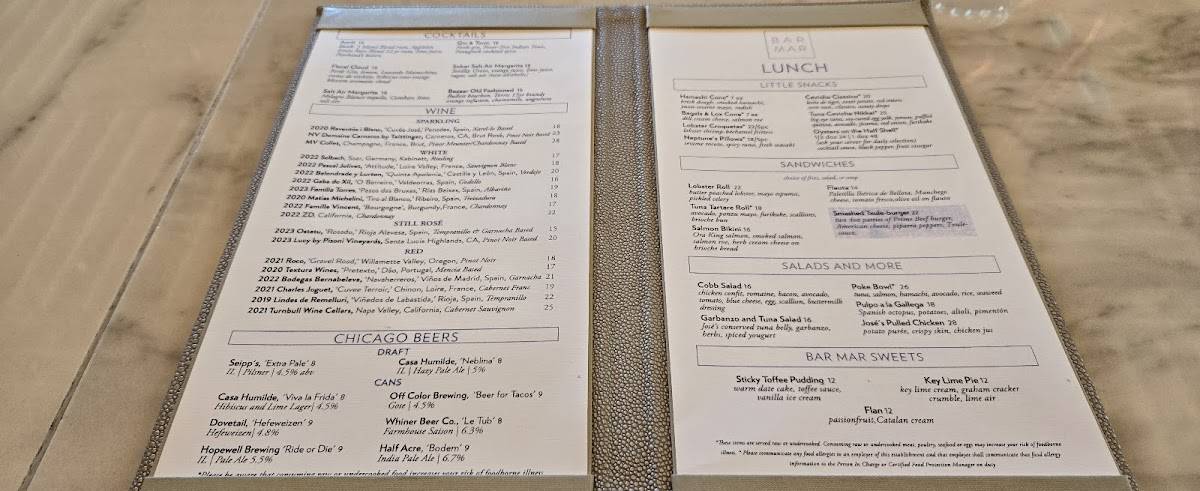 COCKTAILS
Floral Cloud 16
Salt Air Margarita 16
Bazaar Old Fashioned 18
WINE
SPARKLING
2020 Raventós i Blanc, 'Cuvée José,' Penedes, Spain, Xarel·lo Based 18
NV Domaine Carneros by Taittinger, Carneros, CA, Brut Rosé, Pinot Noir Based 23
MV Collet, Champagne, France, Brut, Pinot Meunier/Chardonnay Based 28
WHITE
2022 Selbach, Saar, Germany, Kabinett, Riesling 17
2022 Pascal Jolivet, 'Attitude,' Loire Valley, France, Sauvignon Blanc 18
2022 Belondrade y Lurton, 'Quinta Apolonia,' Castilla y León, Spain, Verdejo 20
2022 Gaba do Xil, 'O Barreiro,' Valdeorras, Spain, Godello 16
2023 Familia Torres, 'Pazo das Bruxas,' Rías Baixas, Spain, Albariño 19
2020 Matías Michelini, 'Tiro al Blanco,' Ribeiro, Spain, Treixadura 18
2022 Famille Vincent, 'Bourgogne', Burgundy, France, Chardonnay 17
2022 ZD, California, Chardonnay 22
STILL ROSÉ
2023 Ostatu, 'Rosado,' Rioja Alavesa, Spain, Tempranillo & Garnacha Based 15
2023 Lucy by Pisoni Vineyards, Santa Lucia Highlands, CA, Pinot Noir Based 20
RED
2021 Roco, 'Gravel Road,' Willamette Valley, Oregon, Pinot Noir 18
2020 Textura Wines, 'Pretexto,' Dão, Portugal, Mencia Based 17
2022 Bodegas Bernabeleva, 'Navaherreros,' Viños de Madrid, Spain, Garnacha 21
2021 Charles Joguet, 'Cuvée Terroir,' Chinon, Loire, France, Cabernet Franc 19
2019 Lindes de Remelluri, 'Viñedos de Labastida,' Rioja, Spain, Tempranillo 22
2021 Turnbull Wine Cellars, Napa Valley, California, Cabernet Sauvignon 25
CHICAGO BEERS
DRAFT
Seipp's, 'Extra Pale' 8
IL | Pilsner | 4.5% abv
Casa Humilde, 'Neblina' 8
IL | Hazy Pale Ale | 5%
CANS
Casa Humilde, 'Viva la Frida' 8
Hibiscus and Lime Lager| 4.5%
Off Color Brewing, 'Beer for Tacos' 9
Gose | 4.5%
Dovetail, 'Hefeweizen' 9
Hefeweizen| 4.8%
Whiner Beer Co., 'Le Tub' 8
Farmhouse Saison | 6.3%
Hopewell Brewing 'Ride or Die' 9
IL | Pale Ale 5.5%
Half Acre, 'Bodem' 9
India Pale Ale | 6.7%
BAR
MAR
LUNCH
LITTLE SNACKS
Hamachi Cone* 7 ea
brick dough, smoked hamachi,
Bagels & Lox Cone* 7 ea
dill cream cheese, salmon roe
Lobster Croquetas* 22/5pc
Neptune's Pillows* 18/5pc
Ceviche Clásico* 20
Tuna Ceviche Nikkei* 25
Oysters on the Half Shell*
SANDWICHES
choice of fries, salad, or soup
Lobster Roll 22
butter poached lobster, mayo espuma,
pickled celery
Tuna Tartare Roll* 18
avocado, ponzu mayo, furikake, scallions,
brioche bun
Salmon Bikini 16
Ora King salmon, smoked salmon,
salmon roe, herb cream cheese on
brioche bread
Flauta 14
Paletilla Ibérica de Bellota, Manchego
cheese, tomato fresco, olive oil on flauta
Smashed Txule-burger 22
two 4oz patties of Prime Beef burger,
American cheese, piparra peppers, Txule-
sauce.
SALADS AND MORE
Cobb Salad 16
chicken confit, romaine, bacon, avocado,
tomato, blue cheese, egg, scallion, buttermilk
dressing
Garbanzo and Tuna Salad 16
José's conserved tuna belly, garbanzo,
herbs, spiced yogurt
Poke Bowl* 26
tuna, salmon, hamachi, avocado, rice, seaweed
Pulpo a la Gallega 18
Spanish octopus, potatoes, alioli, pimentón
José's Pulled Chicken 28
potato purée, crispy skin, chicken jus
BAR MAR SWEETS
Sticky Toffee Pudding 12
warm date cake, toffee sauce,
vanilla ice cream
Key Lime Pie 12
key lime cream, graham cracker
crumble, lime air
Flan 12
passionfruit, Catalan cream
*These items are served raw or undercooked. Consuming raw or undercooked meat, poultry, seafood or egg may increase your risk of foodborne
illness. * Please communicate any food allergies to an employee of this establishment and that employee shall communicate that food allergy
information to the Person In Charge or Certified Food Protection Manager on duty